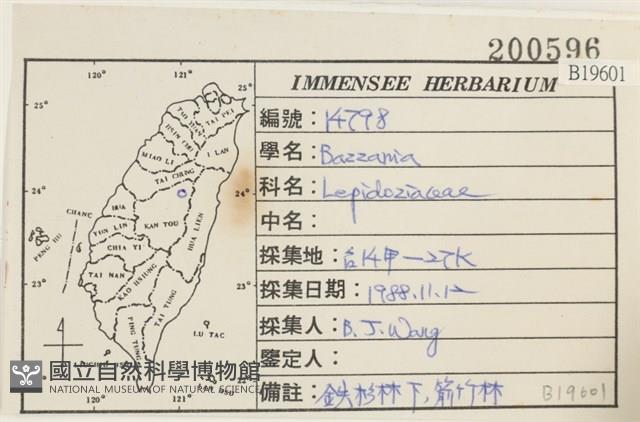 200596
B19601
IMMENSEE HERBARIUM
編號：14798
學名：Bazzania
科名：Lepidoziaceae
中名：
採集地：台14甲—27K
採集日期：1988.11.12
採集人：B.J.Wang
鑒定人：
備註：鉄杉林下,箭竹林
B19601
120° 121°
25° 25°
TAI PEI
I LAN
MIAO LI
TAI CHUNG
24° 24°
CHANG
HUA
PENG HU
YUN LIN
NAN TOU
HUA LIEN
CHIA YI
TAI NAN
KAO HSIUNG
23° 23°
TAI TUNG
PING TUNG
LU TAO
國立自然科學博物館
NATIONAL MUSEUM OF NATURAL SCIENCE
120° 121°